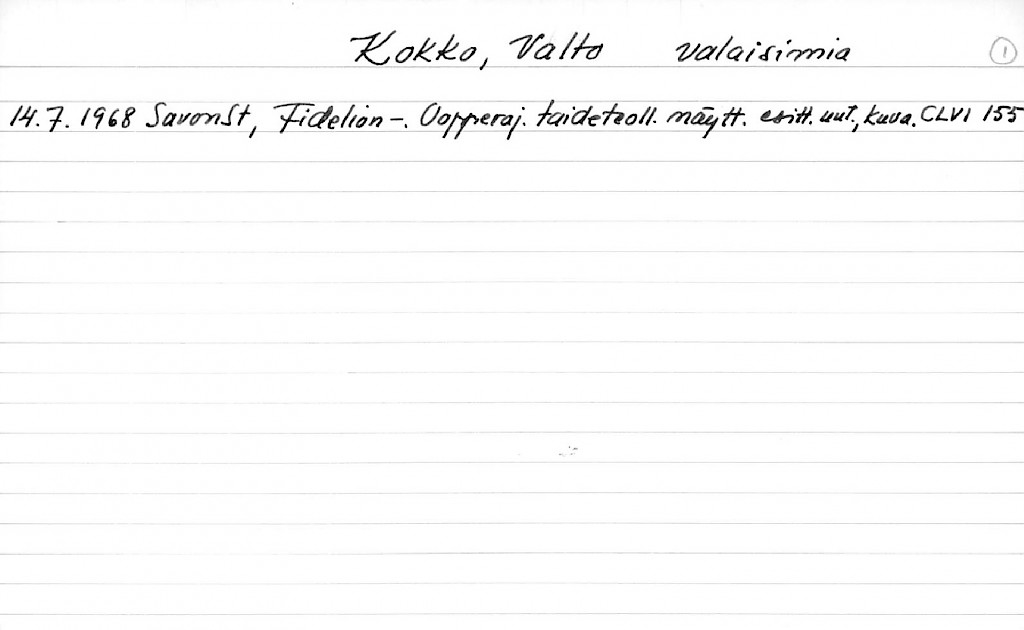 Kokko, Valto valaisimia 1
14.7.1968 SavonSt, Fidelion-. Oopperaj. taideteoll. näytt. esitt. uut., kuva. CLVI 155